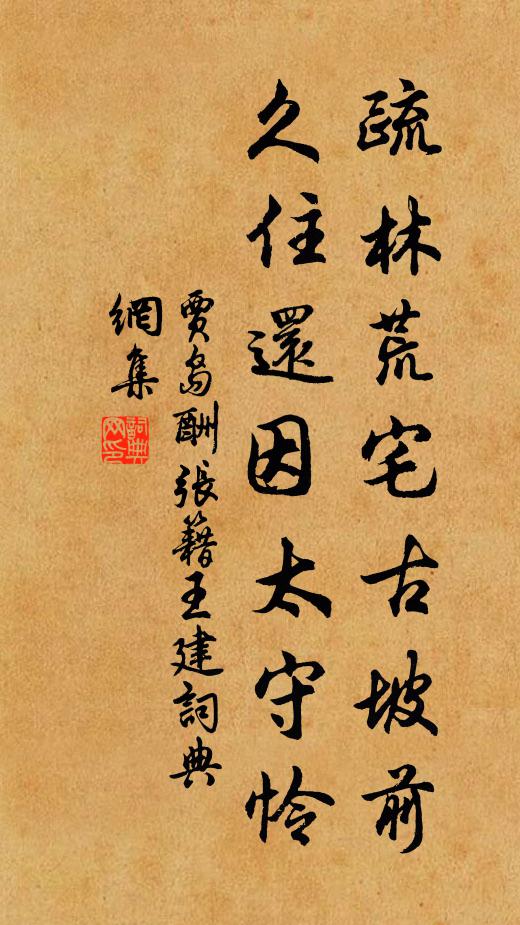 疏林荒宅古坡前
久住還因太守怜
賈島酬張籍王建詞典
網集
詞典
网印